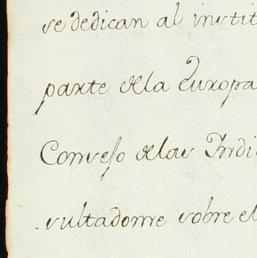 se dedican al instit
parte de la Europa
Consejo de las Indi
sultadome sobre el